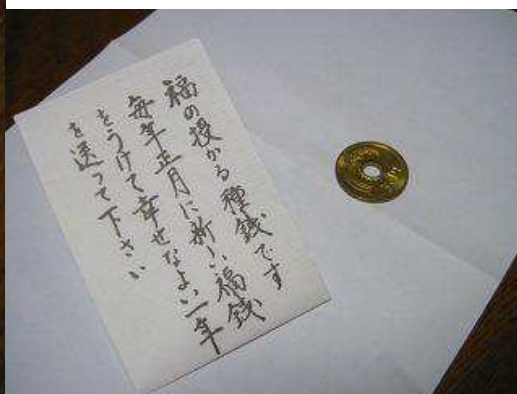 福の授かる種銭です
毎年正月に新しい福銭
をうけて幸せなよい一年
を送って下さい